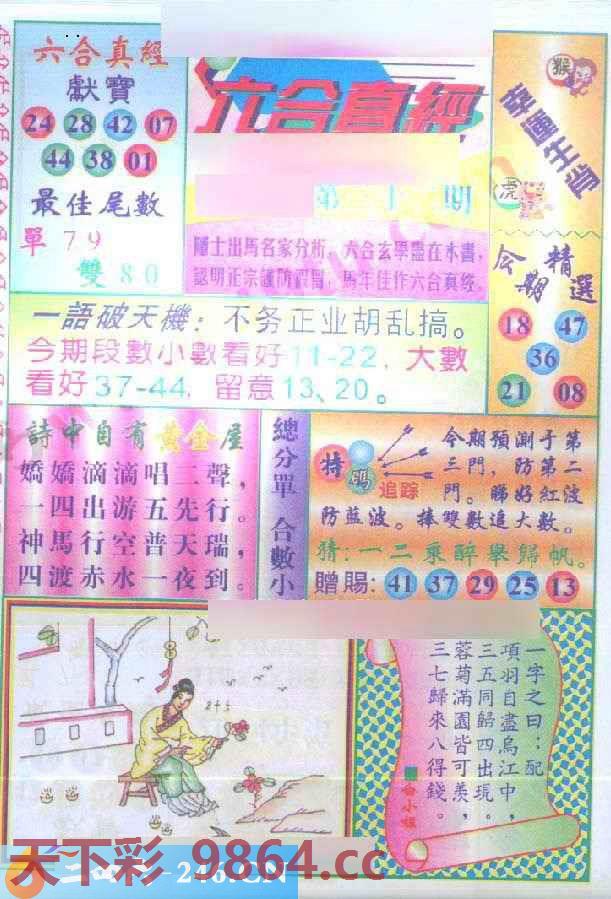 六合真經
獻寶
24 28 42 07
44 38 01
最佳尾數
單 7 9
雙 8 0
六合真經
第 期
隱士出馬名家分析，六合玄學盡在本書，
認明正宗謹防假冒，馬年佳作六合真經。
猴
幸運生肖
虎
今期精選
18 47
36
21 08
一語破天機：不务正业胡乱搞。
今期段數小數看好11-22，大數
看好37-44，留意13、20。
詩中自有黄金屋
嬌嬌滴滴唱二聲，
一四出游五先行。
神馬行空普天瑞，
四渡赤水一夜到。
總分單 合數小
特碼
追踪
今期預測于第
三門，防第二
門。睇好紅波
防藍波。捧雙數追大數。
猜：一二乘醉舉歸帆。
贈賜：41 37 29 25 13
一字之曰：配
項羽自盡烏江中，
三五同歸四出現。
蓉菊滿園皆可羨，
三七歸來八得錢。
白小姐
天下彩 9864.cc
246.CN